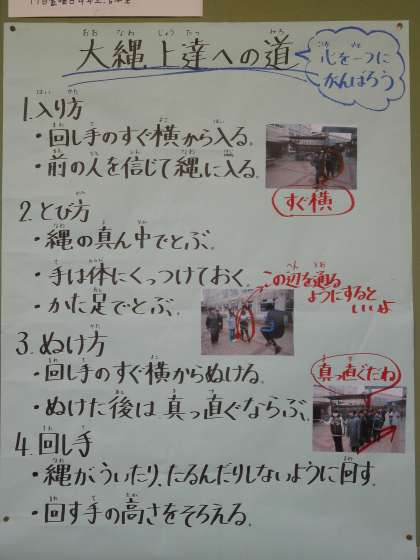 大縄上達への道
心を一つに
がんばろう
1.入り方
・回し手のすぐ横から入る。
・前の人を信じて縄に入る。
すぐ横
2.とび方
・縄の真ん中でとぶ。
・手は体にくっつけておく。
・かた足でとぶ。
この辺を通る
ようにすると
いいよ
3.ぬけ方
・回し手のすぐ横からぬける。
・ぬけた後は真っ直ぐならぶ。
真っ直ぐだね
4.回し手
・縄がういたり、たるんだりしないように回す。
・回す手の高さをそろえる。